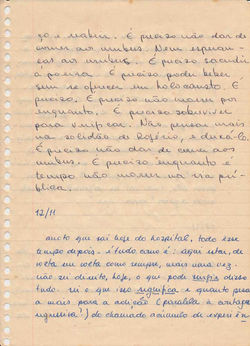 go e madura. É preciso não dar de
comer aos urubus. Nem esperan-
ças aos urubus. É preciso sacudir
a poeira. É preciso poder beber
sem se oferecer em holocausto. É
preciso. É preciso não morrer por
enquanto. É preciso sobreviver
para verificar. Não pensar mais
na solidão de Rogério, e deixá-lo.
É preciso não dar de comer aos
urubus. É preciso enquanto é
tempo não morrer na via pú-
blica.
12/11
que saí hoje do hospital, todo esse
tempo depois. é tudo como é: aqui estou, de
volta em volta como sempre, mais uma vez.
não sei direito, hoje, o que pode surgir disso
tudo. sei o que isso significa e quanto pesa
a mais para a adição (parabéns à
) do chamado acúmulo de experiên